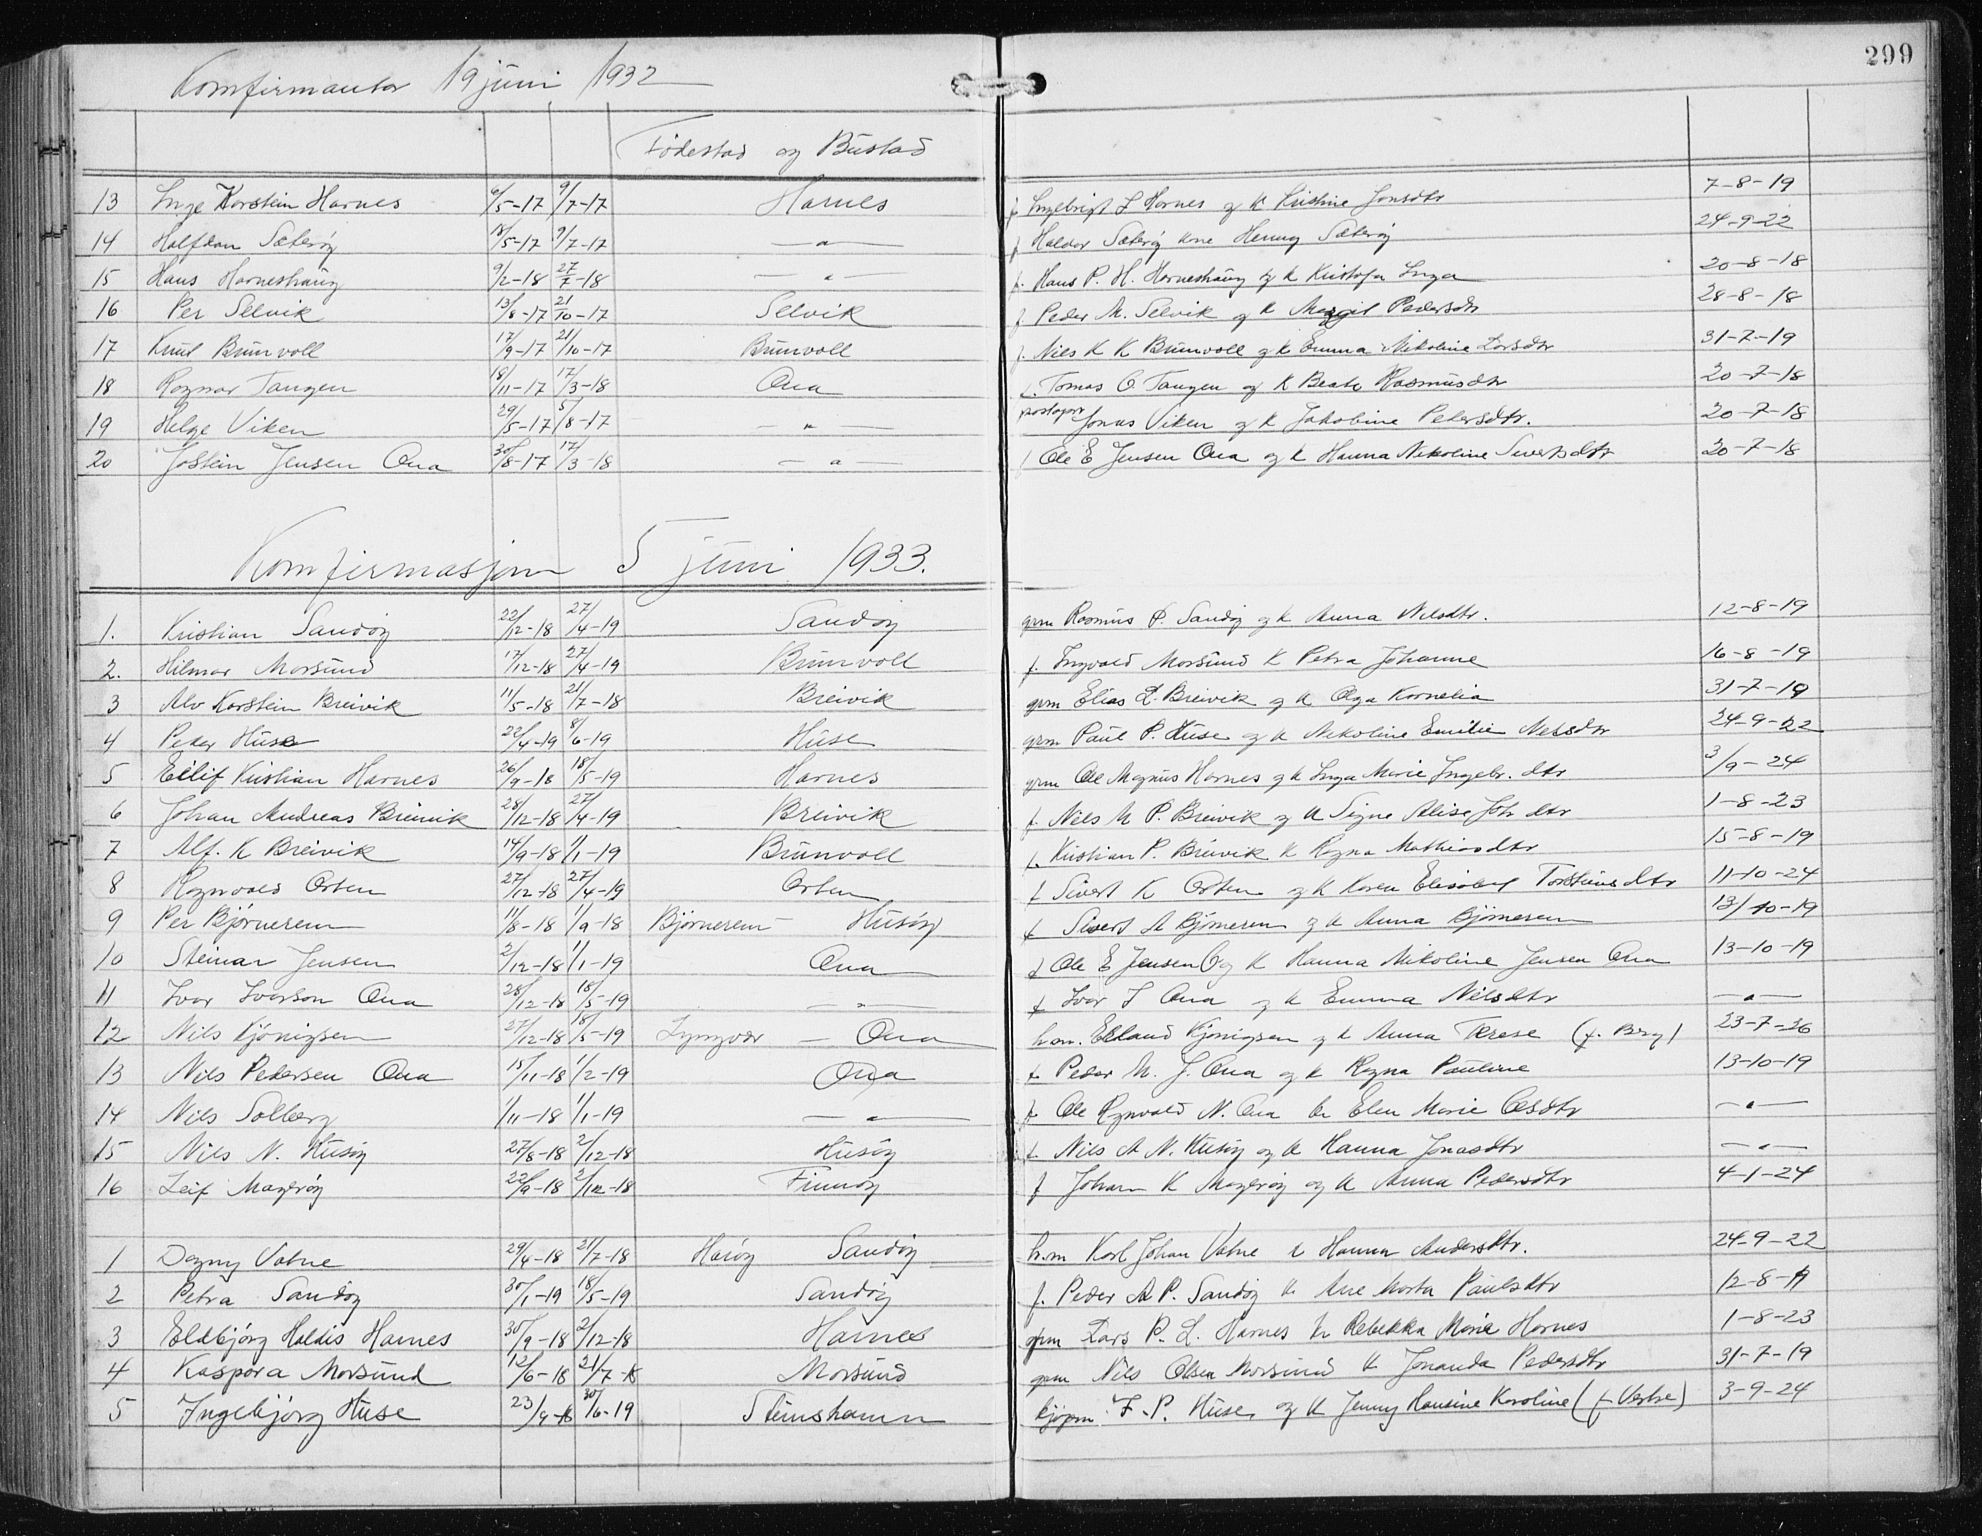 299
Komfirmantar 19 juni 1932
Fødestad og Bustad
13 Inge Korstein Harnes 6/5-17 9/7-17 Harnes f Ingebrigt L Harnes og k Kristine Jonsdtr 7-8-19
14 Halfdan Sæterøy 18/5-17 9/7-17 —„— f Haldor Sæterøy kne Henny Sæterøy 24-9-22
15 Hans Harneshaug 9/2-18 27/7-18 —„— f. Hans P. H. Harneshaug og k Kristofa Inga 20-8-18
16 Per Selvik 13/8-17 21/10-17 Selvik f Peder M. Selvik og k Margit Pedersdtr 28-8-18
17 Knut Brunvoll 17/9-17 21/10-17 Brunvoll f. Nils K K Brunvoll og k Emma Nikoline Larsdtr 31-7-19
18 Ragnar Tangen 18/11-17 17/3-18 Ona f. Tomas O Tangen og k Beate Rasmusdtr 20-7-18
19 Helge Viken 29/5-17 5/8-17 —„— Jonas Viken og k Jakobine Petersdtr. 20-7-18
20 Jostein Jensen Ona 30/8-17 17/3-18 —„ f Ole E Jensen Ona og k Hanna Nikoline Sivertsdtr 20-7-18
Komfirmasjon 5 juni 1933.
1. Kristian Sandøy 22/12-18 27/4-19 Sandøy grm Rasmus P. Sandøy og k Anna Nilsdtr. 12-8-19
2. Hilmar Morsund 17/12-18 27/4-19 Brunvoll f. Ingvald Morsund k Petra Johanne 16-8-19
3 Alv Korstein Breivik 11/5-18 21/7-18 Breivik grm Elias L. Breivik og k Olga Kornelia 31-7-19
4 Peder Huse 22/4-19 8/6-19 Huse grm Paul P. Huse og k Nikoline Emilie Nelsdtr 24-9-22
5 Eilif Kristian Harnes 26/9-18 18/5-19 Harnes grm Ole Magnus Harnes og k Inga Marie Ingebr. dtr 3/9-24
6 Johan Andreas Breivik 28/12-18 27/4-19 Breivik f Nils M P. Breivik og k Signe Alise Joh dtr 1-8-23
7 Alf. K Breivik 14/9-18 1/1-19 Brunvoll f. Kristian P. Breivik k Ragna Mathiasdtr 15-8-19
8 Ragnvald Orten 27/12-18 27/4-19 Orten f Sivert K Orten og k Karen Elisabet Torsteinsdtr 11-10-24
9 Per Bjørnerem 11/8-18 1/9-18 Bjørnerem — Husøy f Sivert A Bjørnerem og k Anna Bjørnerem 13/10-19
10 Steinar Jensen 2/12-18 1/1-19 Ona f Ole E Jensen Og k Hanna Nikoline Jensen Ona 13-10-19
11 Ivar Ivarson Ona 28/12-18 18/5-19 —„— f Ivar I Ona og k Emma Nilsdtr —„—
12 Nils Kjønigsen 27/12-18 18/5-19 Lyngvær — Ona han. Erland Kjønigsen og k Anna Terese (f. Berg) 23-7-26
13 Nils Pedersen Ona 15/11-18 1/2-19 Ona f Peder M. J. Ona og k Ragna Pauline 13-10-19
14 Nils Solberg 1/11-18 1/1-19 —„— f Ole Ragnvald N. Ona k Elen Marie Olsdtr —„—
15 Nils N. Husøy 27/8-18 2/12-18 Husøy f. Nils A N. Husøy og k Hanna Jonasdtr —„—
16 Leif Magerøy 22/9-18 2/12-18 Finnøy f Johan K Magerøy og k Anna Pedersdtr 4-1-24
1 Dagny Vatne 29/4-18 21/7-18 Harøy Sandøy h.m Karl Johan Vatne k Hanna Andersdtr. 24-9-22
2 Petra Sandøy 30/1-19 18/5-19 Sandøy f. Peder A P. Sandøy k Ane Marta Paulsdtr 12-8-19
3 Eldbjørg Haldis Harnes 30/9-18 2/12-18 Harnes grm Lars P. L. Harnes k Rebekka Marie Harnes 1-8-23
4 Kaspara Morsund 12/6-18 21/7-18 Morsund grm Nils Olsen Morsund k Jonanda Pedersdtr 31-7-19
5 Ingebjørg Huse 23/9-18 30/6-19 Steinshamn kjøpm. F. P. Huse og k Jenny Hansine Karoline (f Vestre) 3-9-24